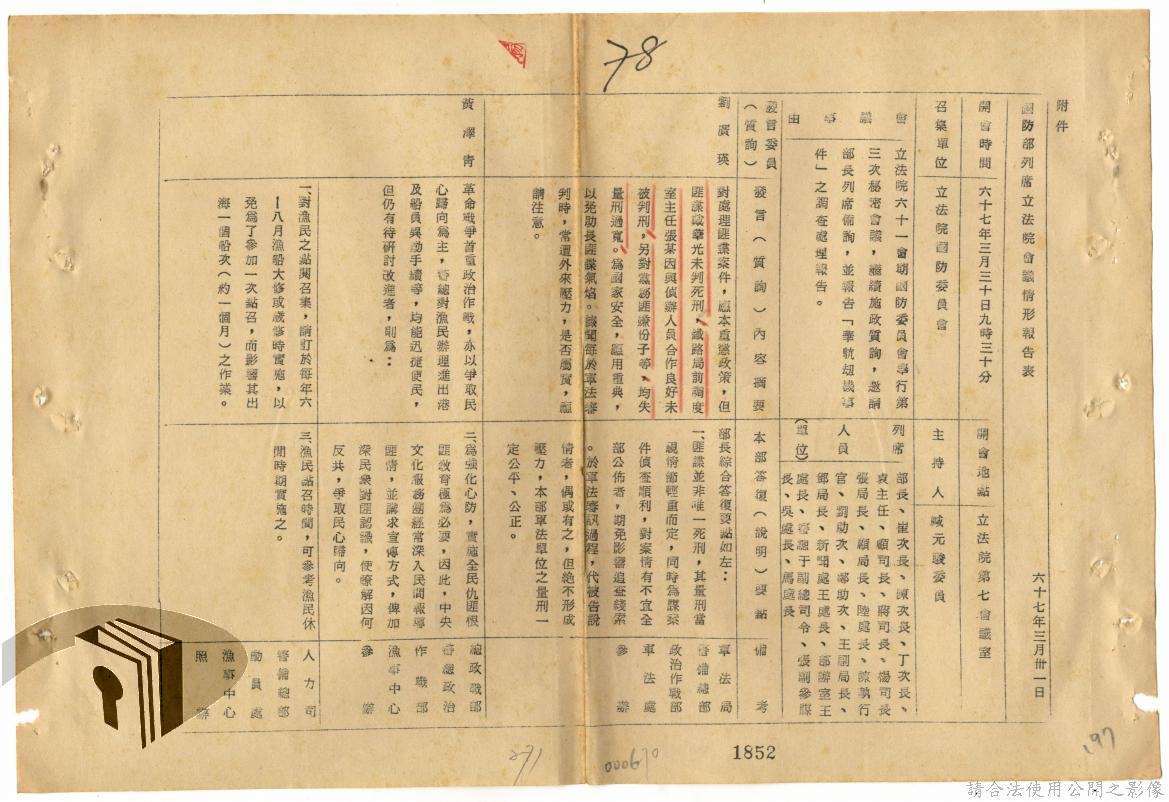 78
附件
國防部列席立法院會議情形報告表
六十七年三月卅一日
開會時間
六十七年三月三十日九時三十分
開會地點
立法院第七會議室
召集單位
立法院國防委員會
主持人
臧元駿委員
會議事由
立法院六十一會期國防委員會舉行第
三次秘密會議,繼續施政質詢,邀請
部長列席備詢,並報告「華航劫機事
件」之調查處理報告。
列席
人員
(單位)
部長、崔次長、陳次長、丁次長、
袁主任、顧司長、蔣司長、楊司長
張局長、顧局長、陸處長、陳執行
官、劉助次、鄒助次、王副局長、
鄭局長、新聞處王處長、部辦室王
處長、警總于副總司令、張副參謀
長、吳處長、馬處長
發言委員
(質詢)
發言(質詢)內容摘要
本部答復(說明)要點
備考
劉廣瑛
對處理匪諜案件,應本重懲政策,但
匪諜戰華光未判死刑,鐵路局前調度
室主任張某因與偵辦人員合作良好未
被判刑,另對黨務匪嫌份子等,均失
量刑過寬。為國家安全,應用重典,
以免助長匪諜氣焰。據聞每於軍法審
判時,常遭外來壓力,是否屬實,應
請注意。
部長綜合答復要點如左:
一、匪諜並非唯一死刑,其量刑當
視情節輕重而定,同時為謀案
件偵查順利,對案情有不宜全
部公佈者,期免影響追查綫索
。於軍法審訊過程,代被告說
情者,偶或有之,但絕不形成
壓力,本部軍法單位之量刑一
定公平、公正。
軍法局
警備總部
政治作戰部
軍法處
參辦
黃澤青
革命戰爭首重政治作戰,亦以爭取民
心歸向為主,警總對漁民辦理進出港
及船員異動手續等,均能迅捷便民,
但仍有待研討改進者,則為:
二、為強化心防,實施全民仇匪恨
匪教育極為必要,因此,中央
文化服務團經常深入民間報導
匪情,並講求宣傳方式,俾加
深民衆對匪認識,使瞭解因何
反共,爭取民心歸向。
總政戰部
警總政治
作戰部
漁事中心
參辦
一、對漁民之點閱召集,請訂於每年六
—八月漁船大修或歲修時實施,以
免為了參加一次點召,而影響其出
海一個船次(約一個月)之作業。
三、漁民點召時間,可參考漁民休
閒時期實施之。
人力司
警備總部
動員處
漁事中心
照辦
271
000670
1852
197
請合法使用公開之影像